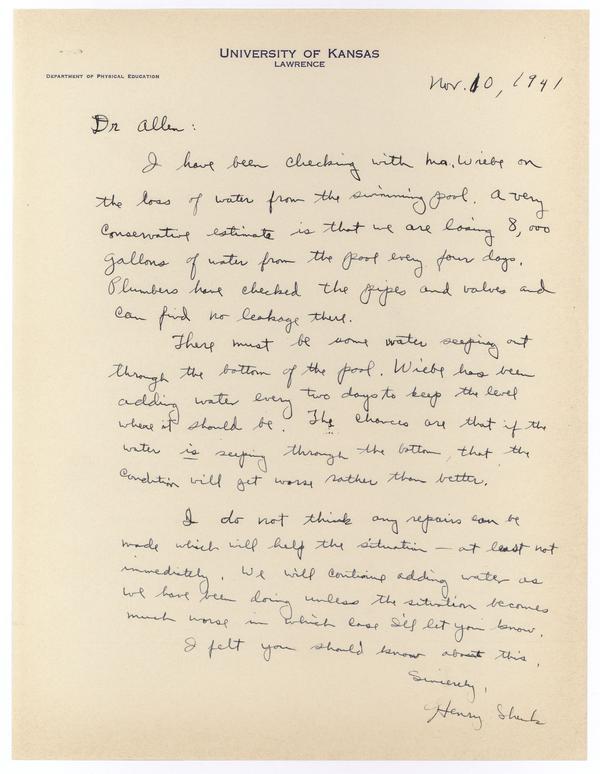 UNIVERSITY OF KANSAS
LAWRENCE
DEPARTMENT OF PHYSICAL EDUCATION
Nov. 10, 1941
Dr Allen:
I have been checking with Mr. Wiebe on
the loss of water from the swimming pool. A very
conservative estimate is that we are losing 8,000
gallons of water from the pool every four days.
Plumbers have checked the pipes and valves and
can find no leakage there.
There must be some water seeping out
through the bottom of the pool. Wiebe has been
adding water every two days to keep the level
where it should be. The chances are that if the
water is seeping through the bottom, that the
condition will get worse rather than better.
I do not think any repairs can be
made which will help the situation – at least not
immediately. We will continue adding water as
we have been doing unless the situation becomes
much worse in which case I'll let you know.
I felt you should know about this.
Sincerely,
Henry Shenk